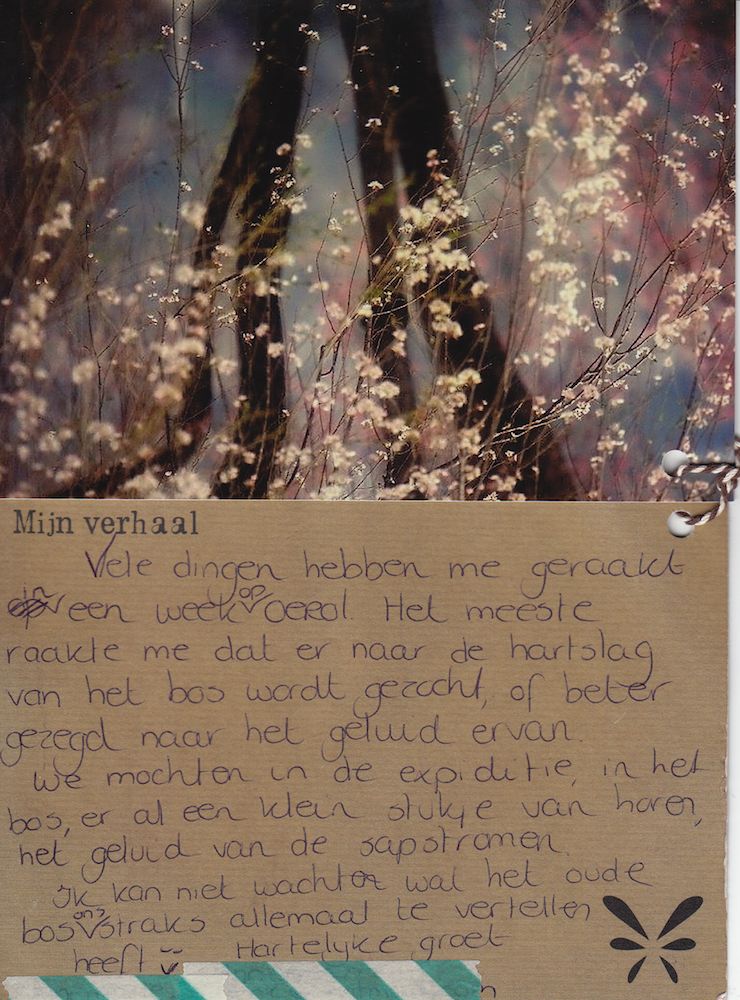 Mijn verhaal
Vele dingen hebben me geraakt
in een week op Oerol. Het meeste
raakte me dat er naar de hartslag
van het bos wordt gezocht, of beter
gezegd naar het geluid ervan.
We mochten in de expiditie, in het
bos, er al een klein stukje van horen,
het geluid van de sapstromen.
Ik kan niet wachten wat het oude
bos ons straks allemaal te vertellen
heeft Hartelijke groet